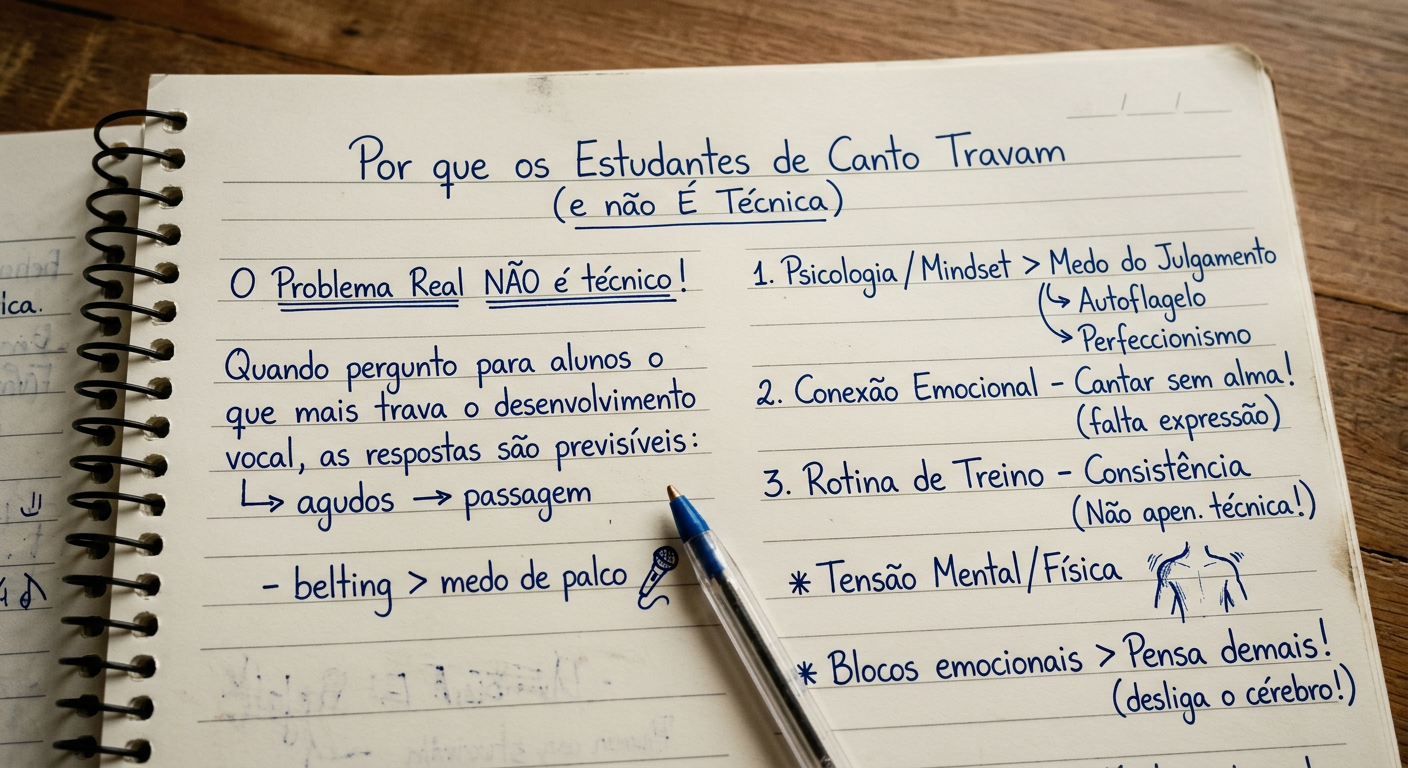 Por que os Estudantes de Canto Travam
(e não É Técnica)
O Problema Real NÃO é técnico!
Quando pergunto para alunos o
que mais trava o desenvolvimento
vocal, as respostas são previsíveis:
↳ agudos → passagem
- belting > medo de palco
1. Psicologia/Mindset > Medo do Julgamento
↳ Autoflagelo
↳ Perfeccionismo
2. Conexão Emocional - Cantar sem alma!
(falta expressão)
3. Rotina de Treino - Consistência
(Não apen. técnica!)
* Tensão Mental/Física
* Blocos emocionais > Pensa demais!
(desliga o cérebro!)
ica.